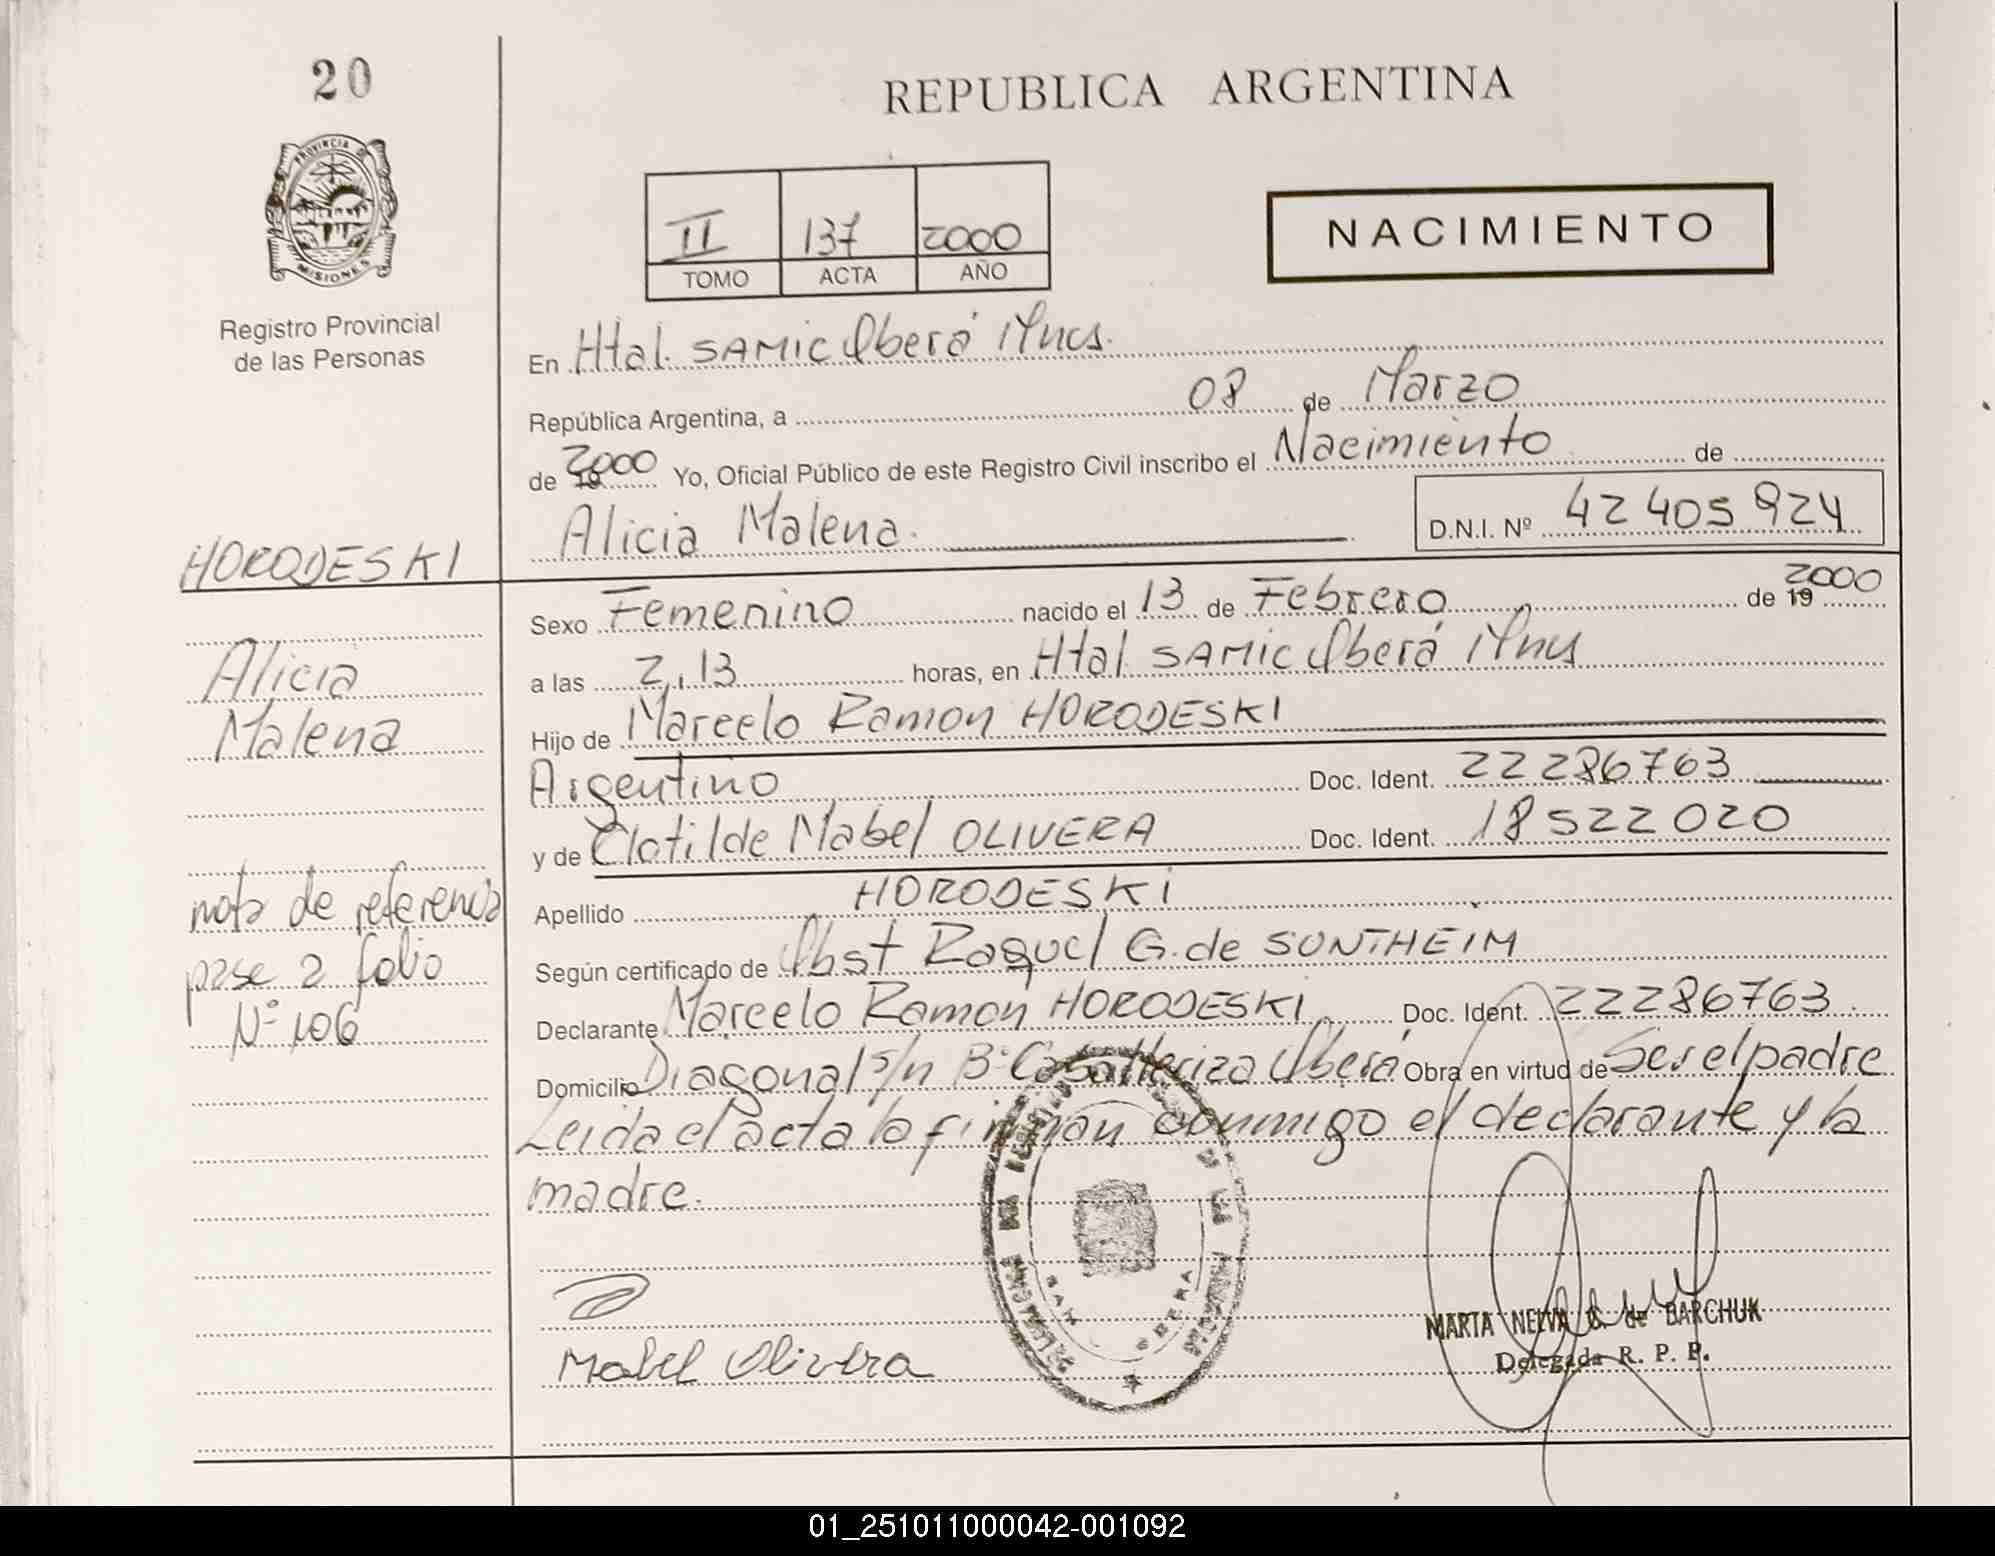 20
REPUBLICA ARGENTINA
PROVINCIA DE
MISIONES
Registro Provincial
de las Personas
II 137 2000
TOMO ACTA AÑO
NACIMIENTO
En Htal. SAMIC Oberá Mnes.
República Argentina, a 08 de Marzo
de 19 2000 Yo, Oficial Público de este Registro Civil inscribo el Nacimiento de
Alicia Malena. D.N.I. Nº 42 405 924
HORODESKI
Alicia
Malena
Sexo Femenino nacido el 13 de Febrero de 19 2000
a las 2,13 horas, en Htal. SAMIC Oberá Mnes
Hijo de Marcelo Ramon HORODESKI
Argentino Doc. Ident. 22 286763
y de Clotilde Mabel OLIVERA Doc. Ident. 18 522 020
Apellido HORODESKI
nota de referencia
pase a folio
Nº 106
Según certificado de Obst Raquel G. de SONTHEIM
Declarante Marcelo Ramon HORODESKI Doc. Ident. 22286763
Domicilio Diagonal s/n Bº Caballeriza Oberá Obra en virtud de Ser el padre
Leida el acta la firman conmigo el declarante y la
madre.
OBERA
Mabel Olivera
MARTA NELVA G. de BARCHUK
Delegada R. P. P.
01_251011000042-001092